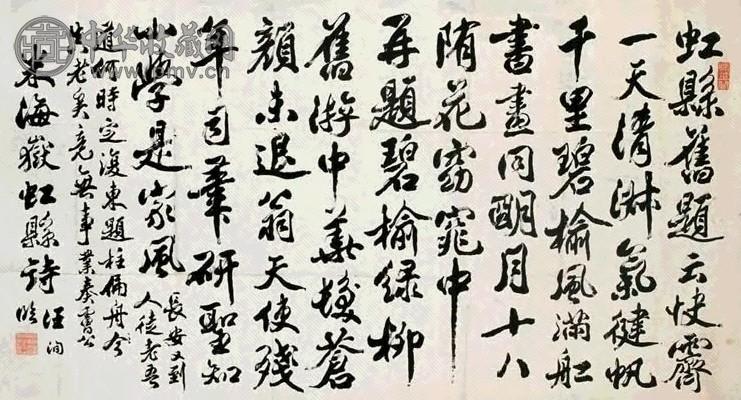 虹縣舊題云快霽
一天清淑氣健帆
千里碧榆風滿舡
書畫同明月十八
隋花窈窕中
再題碧榆綠柳
舊游中華髮蒼
顏未退翁天使殘
年司筆研聖知
小學是家風
長安又到
人徒老吾
道何時定復東題柱扁舟今
真老矣竟無事業奏膚公
米海嶽虹縣詩 汪洵臨
中华收藏网